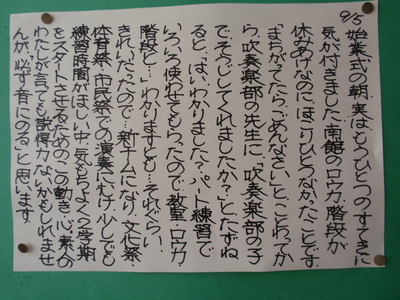 9/5
始業式の朝、実はもうひとつのすてきに
気が付きました。南館のロウカ、階段が
休みあけなのにほこりひとつなかったことです。
「まちがってたら、ごめんなさい」と、ことわってか
ら、吹奏楽部の先生に「吹奏楽部の子
でそうじしてくれましたか?」とたずね
ると、「はい、わかりました?パート練習で
いろいろ使わせてもらったので、教室・ロウカ・
階段と…」わかりますとも…それぐらい
きれいだったので…新チームになり、文化祭・
体育祭・市民祭での演奏にむけ、少しでも
練習時間がほしい中、気もちよく2学期
をスタートさせるための、この動き、心。素人の
わたしが言っても説得力ないかもしれませ
んが、“必ず音にのる”と思います。